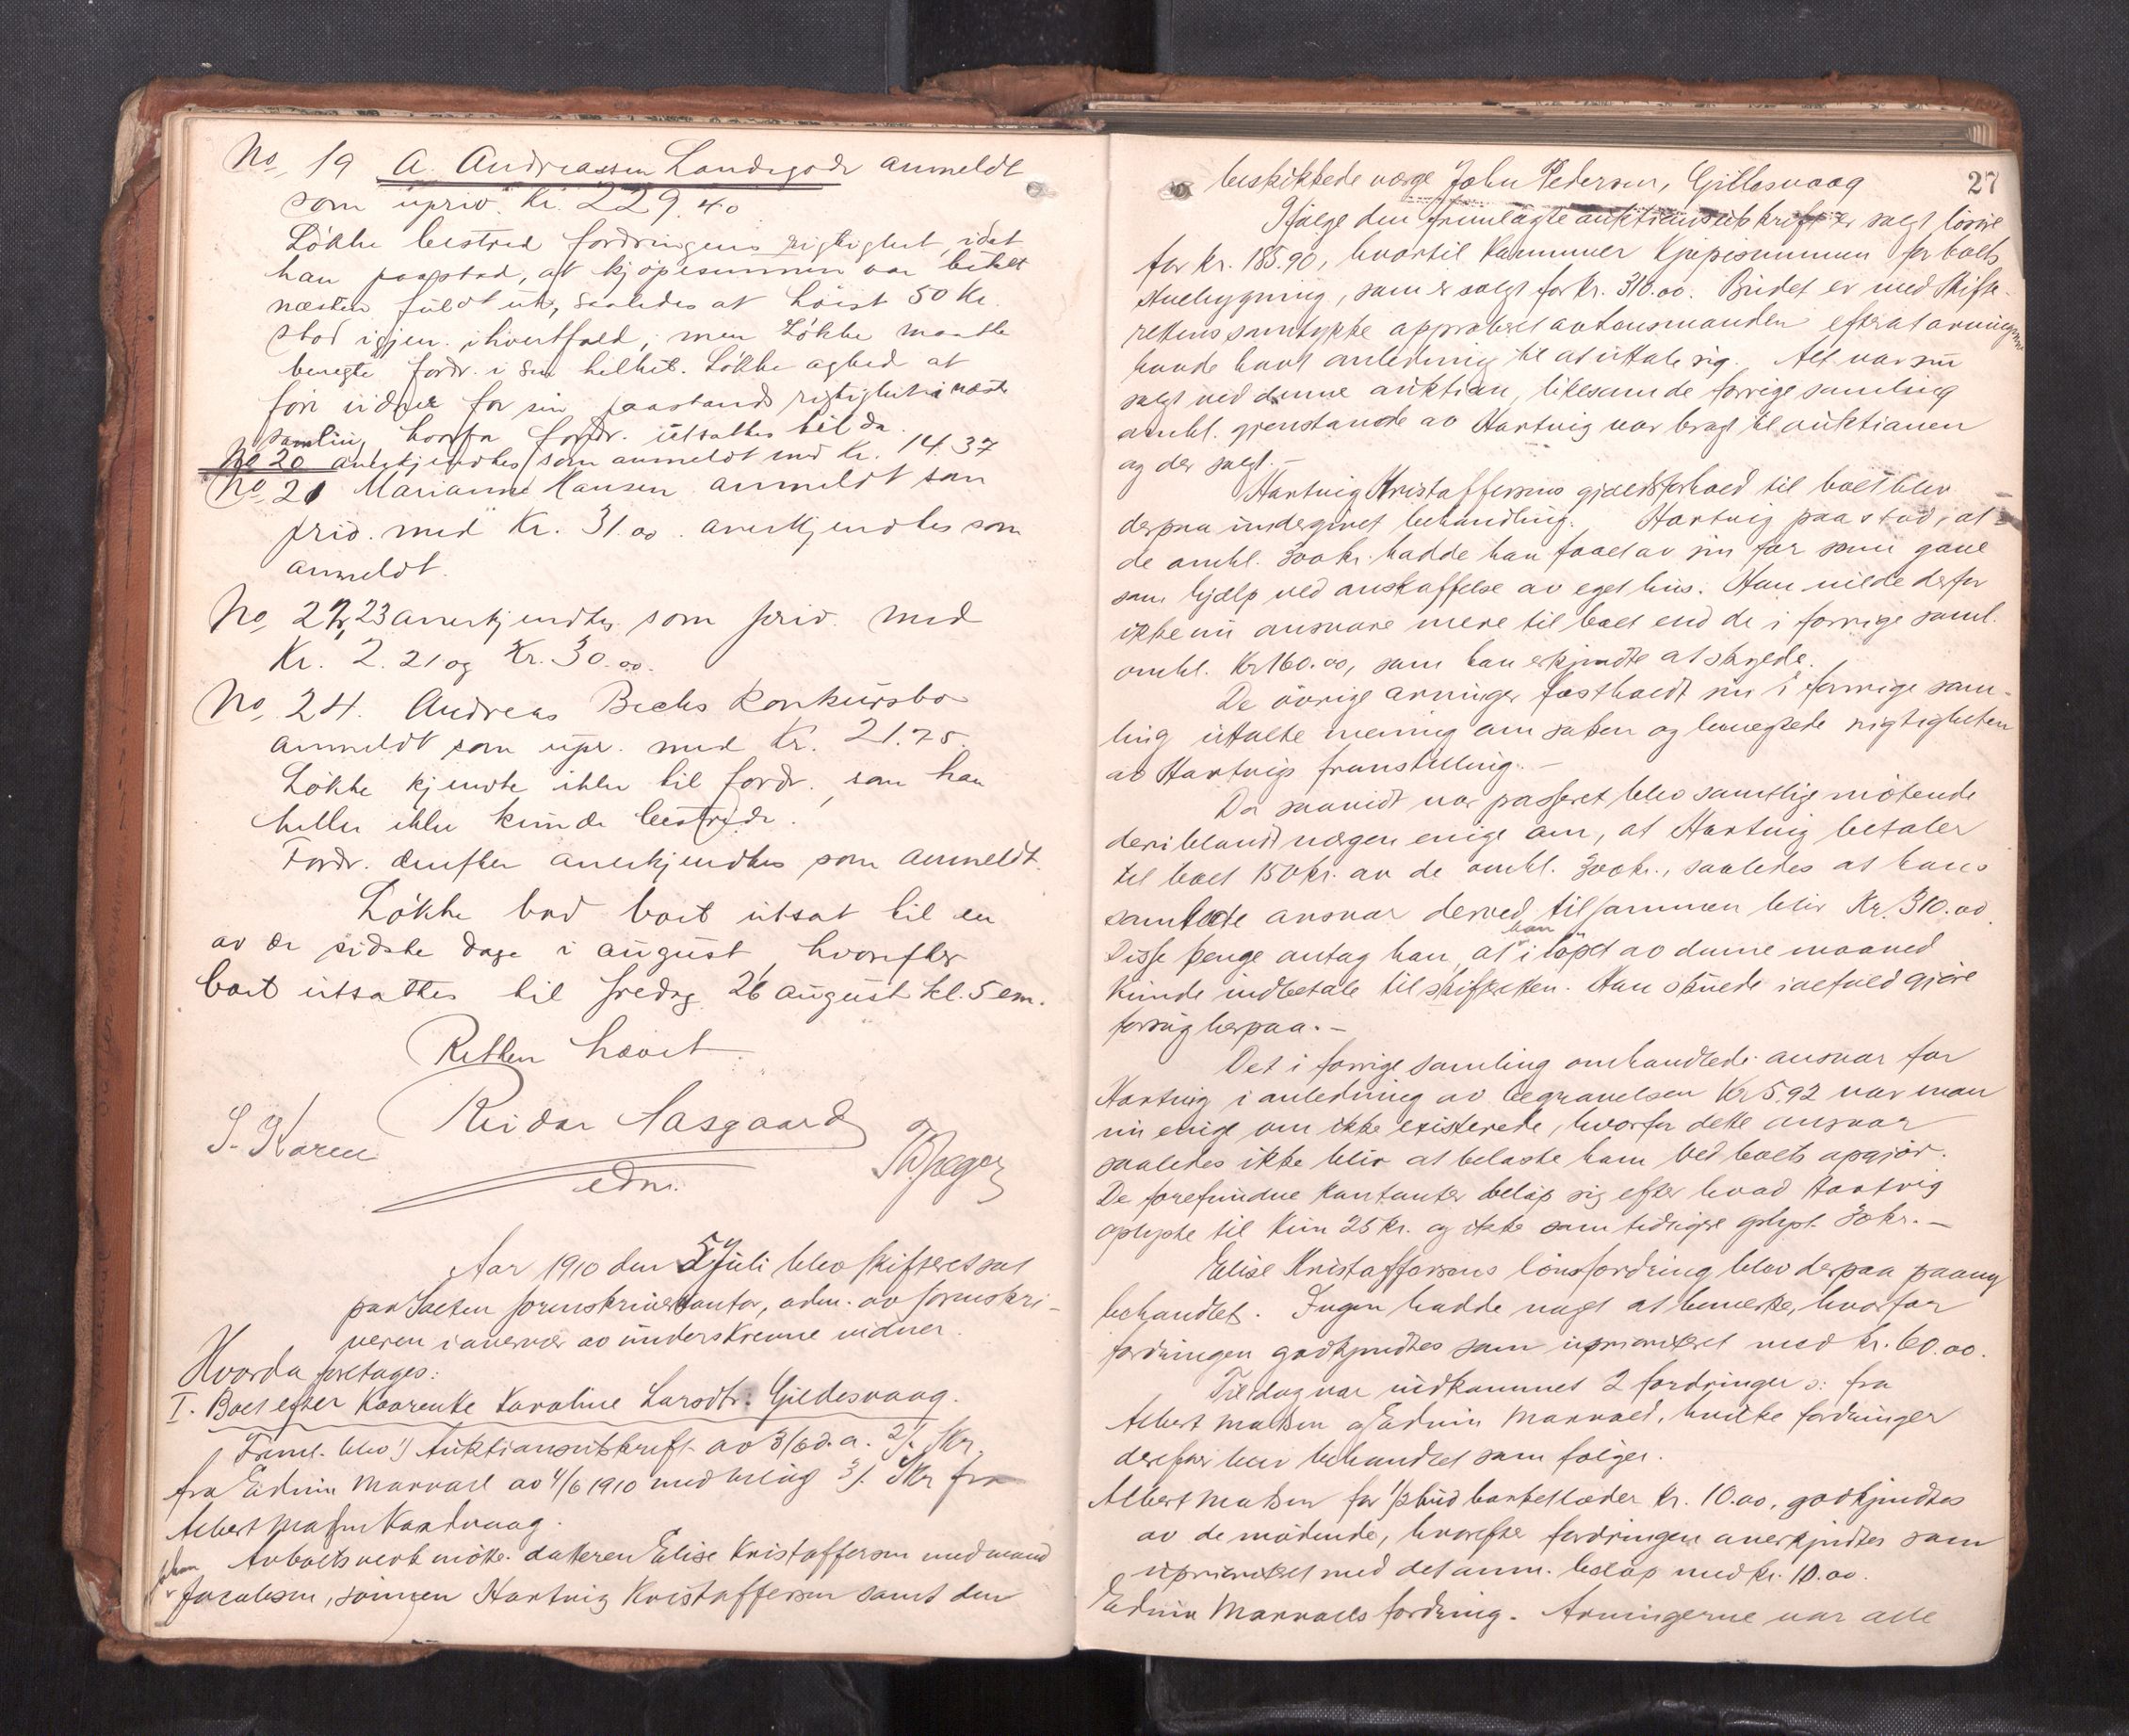 No. 19 A. Andreassen Landegode anmeldt
som upriv. Kr. 229.40
Løkke bestred fordringens rigtighet, idet
han paastod, at kjøpesummen var betalt
næsten fuldt ut, saaledes at høist 50 Kr.
stod igjen. ihvertfald, men Løkke maatte
benegte fordr. i sin helhet. Løkke agted at
føre vidner for sin paastands rigtighet i næste
samling, hvorfor fordr. utsattes til da.
No 20 anerkjendtes som anmeldt med Kr. 14.37
No. 21 Marianne Hansen anmeldt som
priv. med Kr. 31.00. anerkjendtes som
anmeldt.
No. 22, 23 anerkjendtes som priv. med
Kr. 2.21 og Kr. 30.00.
No. 24. Andreas Bechs Konkursbo
anmeldt som upr. med Kr. 21.75.
Løkke kjendte ikke til fordr., som han
heller ikke kunde bestride.
Fordr. derefter anerkjendtes som anmeldt.
Løkke bad boet utsat til en
av de sidste dage i august, hvorefter
boet utsattes til fredag 26 august kl. 5 em.
Retten hævet.
Reidar Aasgaard
S. Karen
edm.
Aar 1910 den 5 Juli blev skifteret sat
paa Salten sorenskriverkontor, adm. av sorenskri-
veren i overvær av underskrevne vidner.
Hvorda foretages:
I. Boet efter Kaarenke Karoline Larsdtr: Gildesvaag.
Freml. blev 1) Auktionsutskrift av 3/6 d.a. 2). Skr.
fra Edvin Marvael av 4/6 1910 med bilag 3). Skr fra
Albert Madsen Kandvaag.
Arboets verk møtte datteren Elise Kristoffersen med mand
Johan
Jacobsen, sønnen Hartvig Kristoffersen samt den
27
beskikkede værge John Pedersen, Gillesvaag
Ifølge den fremlagte auktionsutskrift er solgt løsøre
for kr. 185.90, hvortil kommer kjøpesummen for boets
stuebygning, som er solgt for kr. 310.00. Budet er med skifte-
rettens samtykke approberet av lensmanden efterat arvingerne
havde havt anledning til at uttale sig. Alt var nu
solgt ved denne auktion, likesom de forrige samling
omhl. gjenstande av Hartvig var bragt til auktionen
og der solgt.-
Hartvig Kristoffersens gjældsforhold til boet blev
derpaa undergivet behandling. Hartvig paastod, at
de omhl. 300 kr. hadde han faaet av sin far som gave
som hjælp ved anskaffelse av eget hus. Han vilde derfor
ikke nu ansvare mere til boet end de i forrige saml.
omhl. kr 160.00, som han erkjendte at skylde.
De øvrige arvinger fastholdt sin i forrige sam-
ling uttalte mening om saken og benegtede rigtigheten
av Hartvigs fremstilling.-
Da saavidt var passeret blev samtlige møtende
deriblandt værgen enige om, at Hartvig betaler
til boet 150 kr. av de omhl. 300 kr., saaledes at hans
samlede ansvar derved tilsammen blir Kr. 310.00.
Disse penge antog han, at han i løpet av denne maaned
kunde indbetale til skifteretten. Han skulde ialfald gjøre
forsøg herpaa.-
Det i forrige samling omhandlede ansvar for
Hartvig i anledning av begravelsen Kr 5.92 var man
nu enige om ikke existerede, hvorfor dette ansvar
saaledes ikke blir at belaste ham ved boets opgjør.
De forefundne kontanter beløp sig efter hvad Hartvig
oplyste til kun 25 kr. og ikke som tidligere oplyst 30 kr.-
Elise Kristoffersens lønsfordring blev derpaa paany
behandlet. Ingen hadde noget at bemerke, hvorfor
fordringen godkjendtes som uprioriteret med kr. 60.00.
Til dag var indkommet 2 fordringer o: fra
Albert Madsen og Edvin Marvael, hvilke fordringer
derefter blev behandlet som følger.
Albert Madsen for 1/2 hud barketlæder kr. 10.00, godkjendtes
av de mødende, hvorefter fordringen anerkjendtes som
uprioriteret med det anm. beløp med kr. 10.00.
Edvin Marvaels fordring. Arvingerne var alle